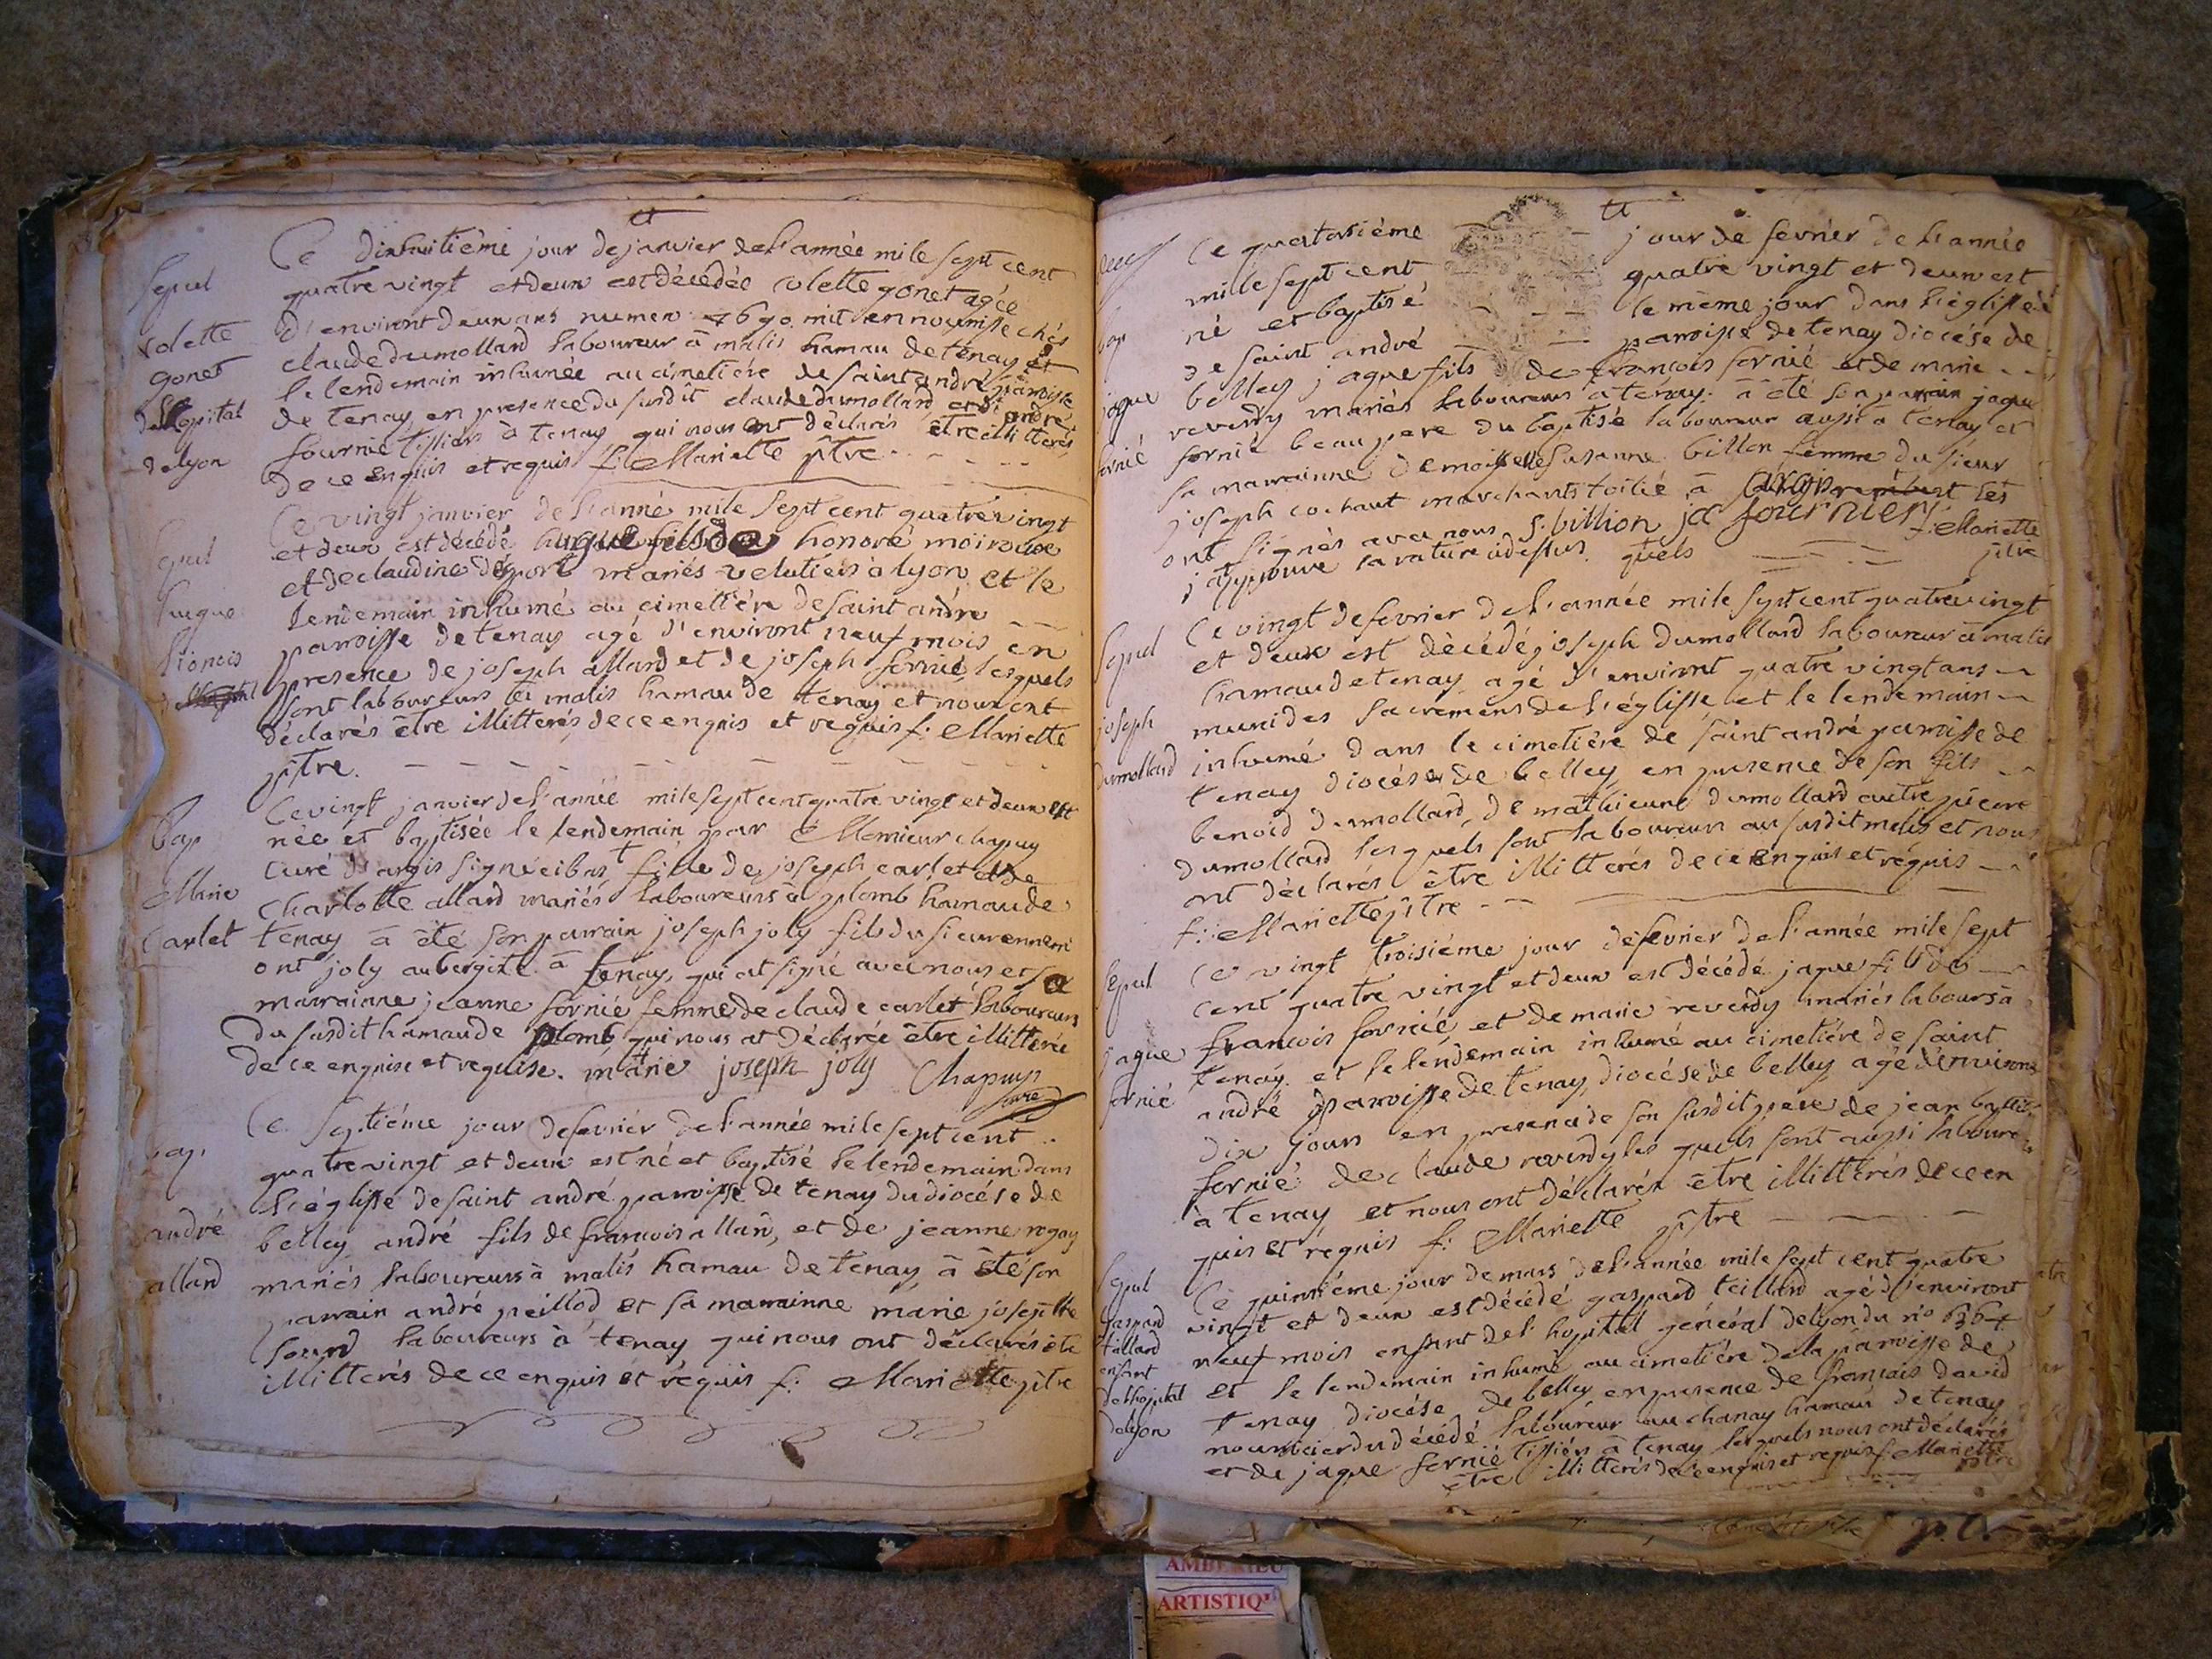 Ce dixhuitiéme jour de janvier de l'année mile sept cent
Sepul
quatre vingt et deux est décédée colette gonet agée
d'environt deux ans numero 7690 mit en nourrisse chés
Colette
claude dumollard laboureur à malis hamau de tenay et
gonet
le lendemain inhumée au cimetiere de saint andré paroisse
de l'hopital
de tenay en presence du susdit claude dumollard et d'andré
fournié tissiers à tenay qui nous ont déclarés être illitterés
de lyon
de ce enquis et requis f: Mariette ptre
Ce vingt janvier de l'anné mile sept cent quatre vingt
Sepul
et deux est décédé hugue fils de honoré moiroux
et de claudine deport mariés velutiers a lyon et le
hugue
lendemain inhumé au cimetiére de saint andré
paroisse de tenay agé d'environt neuf mois en
lionois
presence de joseph allard et de joseph fornié lesquels
sont laboureurs à malis hamau de tenay et nous ont
déclarés être illitterés de ce enquis et requis f: Mariette
ptre.
Bap
Ce vingt janvier de l'année mile sept cent quatre vingt et deux est
née et baptisée le lendemain par Monsieur chapuy
curé d'argis signé cibas + fille de joseph carlet et de
Marie
charlotte allard mariés laboureurs à plomb hamau de
Carlet
tenay à été son parrain joseph joly fils du sieur ennem
ont joly aubergiste à tenay, qui at signé avec nous et sa
marrainne jeanne fornié femme de claude carlet laboureurs
du susdit hamau de plomb qui nous at déclarée être illitterée
de ce enquise et requise. + marie joseph joly Chapuys
curé
Ce septiéme jour de fevrier de l'année mile sept cent
bap.
quatre vingt et deux est né et baptisé le lendemain dans
l'église de saint andré paroisse de tenay du diocése de
andré
belley andré fils de francois allard, et de jeanne rogay
allard
mariés laboureurs à malis hamau de tenay à été son
parrain andré peillod et sa marrainne marie josephte
laboureurs à tenay qui nous ont déclarés etre
illitterés de ce enquis et requis f: Mariette ptre
Ce quatorsiéme jour de fevrier de l'année
mille sept cent quatre vingt et deux est
bap
né et baptisé le même jour dans l'églisse
de saint andré paroisse de tenay diocése de
jaque
belley jaque fils de françois fornié et de marie
reverdy mariés laboureurs à tenay. à été son parrain jaque
fornié
fornié beaupere du baptisé laboureur aussi à tenay et
sa marrainne demoiselle susanne billon femme du sieur
joseph cochaut marchants toilié à les
ont signés avec nous S. billion ja fournier f: Mariette
j'approuve la rature cidessus quels ptre
Ce vingt de fevrier de l'année mile sept cent quatre vingt
Sepul
et deux est décédé joseph dumollard laboureur à malis
hamau de tenay agé d'environt quatre vingt ans
joseph
muni des sacremens de l'églisse et le lendemain
dumollard
inhumé dans le cimetiére de saint andré paroisse de
tenay diocése de belley en presence de son fils
benoid dumollard, de mathieu dumollard autre pierre
dumollard lesquels sont laboureurs au susdit malis et nous
ont déclarés être illitterés de ce enquis et réquis
f: Mariette ptre
Sepul
Ce vingt troisiéme jour de fevrier de l'année mile sept
cent quatre vingt et deux est décédé jaque fils de
françois fornié, et de marie reverdy mariés labours à
jaque
tenay et le lendemain inhumé au cimetiére de saint
fornié
andré paroisse de tenay, diocése de belley agé d'environt
dix jours en presence de son susdit pere de jean
fornié de claude reverdy les quels sont aussi laboure
à tenay et nous ont déclarés être illitterés de ce en
quis et réquis f: Mariette ptre
Sepul
Ce quinsiéme jour de mars de l'année mile sept cent quatre
gaspard
vingt et deux est décédé gaspard teillard agé d'environt
tallard
neuf mois enfant de l'hopital général de lyon du no 6364
enfant
et le lendemain inhumé au cimetiére de la paroisse de
de l'hopital
tenay diocése de belley en presence de françois david
de lyon
nourricier du décédé laboureur au chanay hamau de tenay
et de jaque fornié tissiers à tenay lesquels nous ont déclarés
être illitterés de ce enquis et requis f: Mariette
ptre
ARTISTIQ